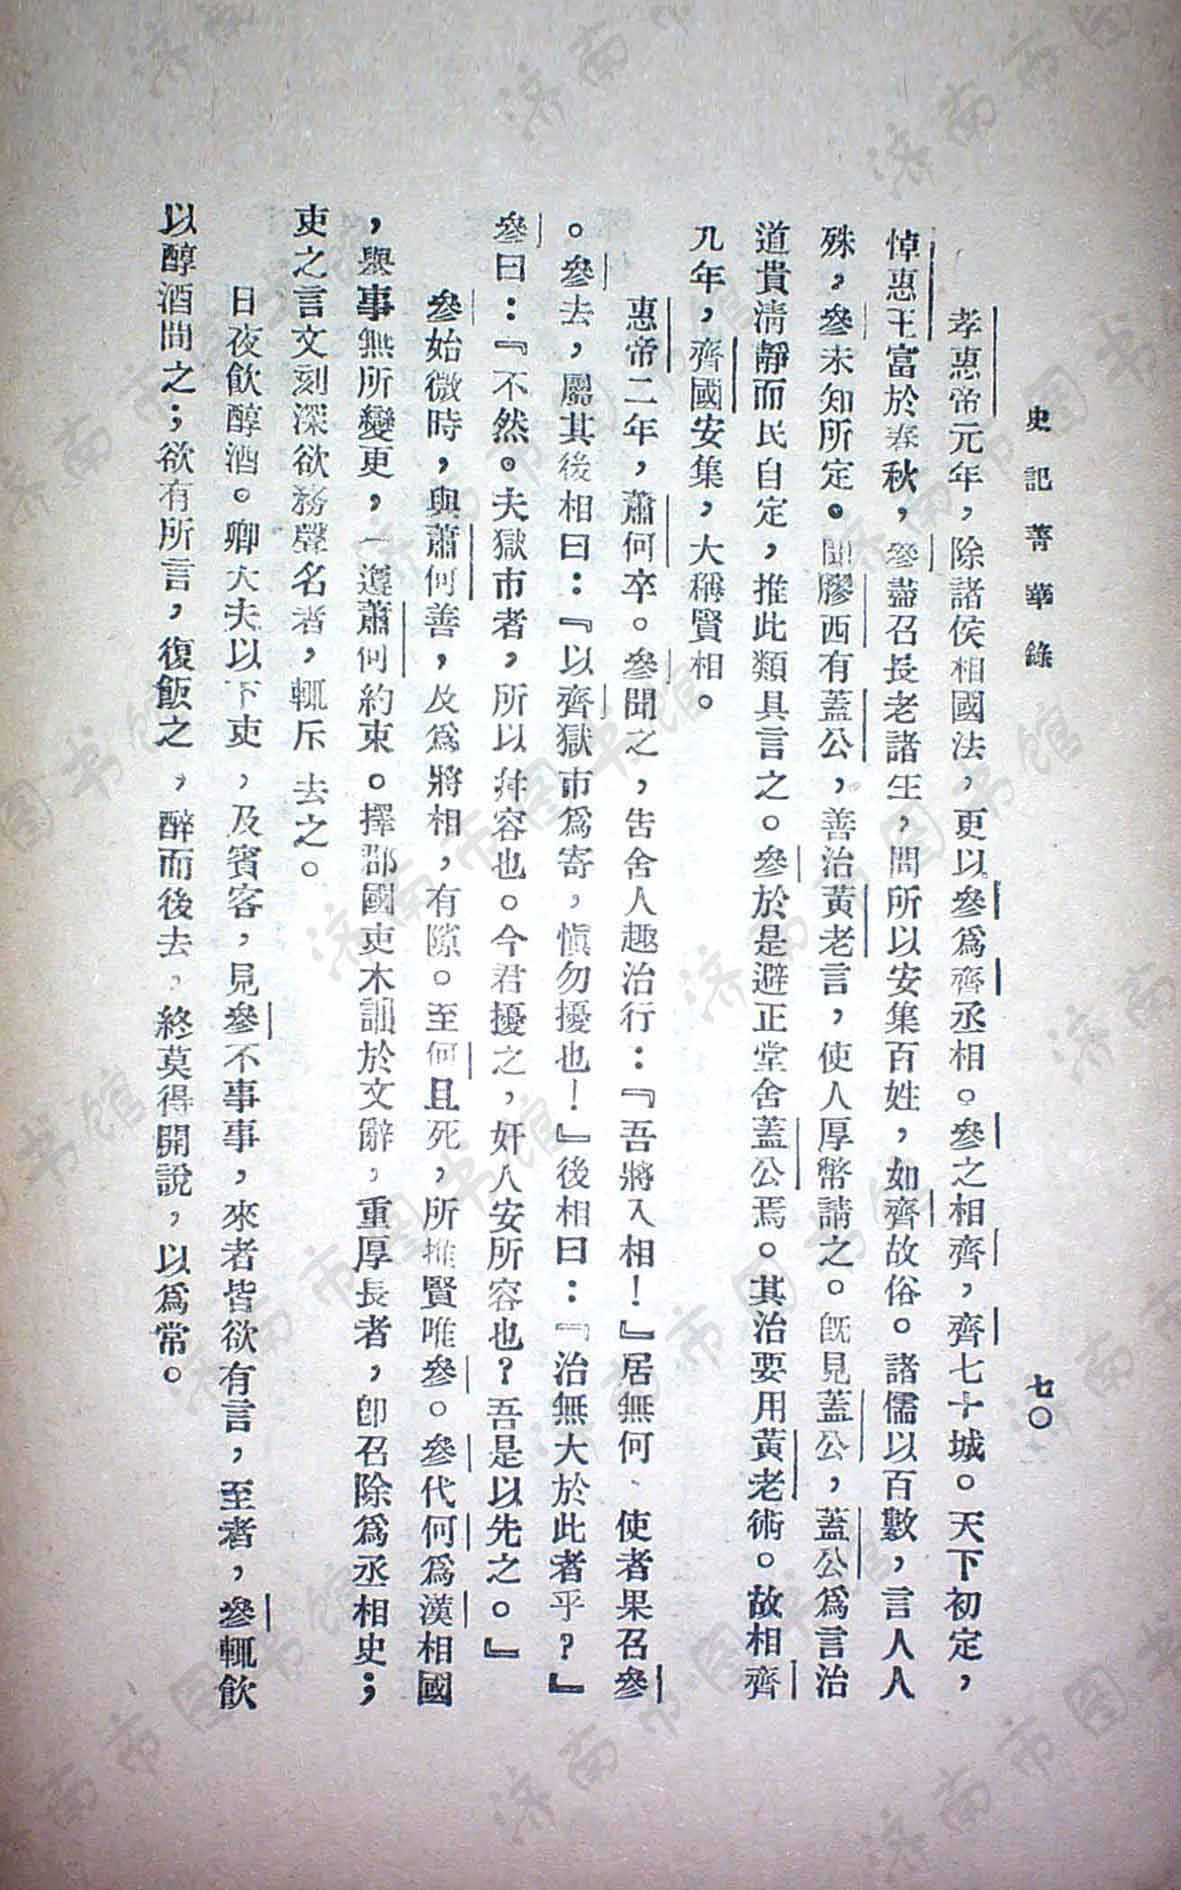 史記菁華錄
七〇
孝惠帝元年，除諸侯相國法，更以參爲齊丞相。參之相齊，齊七十城。天下初定，
悼惠王富於春秋，參盡召長老諸生，問所以安集百姓，如齊故俗。諸儒以百數，言人人
殊，參未知所定。聞膠西有蓋公，善治黃老言，使人厚幣請之。旣見蓋公，蓋公爲言治
道貴清靜而民自定，推此類具言之。參於是避正堂舍蓋公焉。其治要用黃老術。故相齊
九年，齊國安集，大稱賢相。
惠帝二年，蕭何卒。參聞之，告舍人趣治行：『吾將入相！』居無何、使者果召參
。參去，屬其後相曰：『以齊獄市爲寄，愼勿擾也！』後相曰：『治無大於此者乎？』
參曰：『不然。夫獄市者，所以幷容也。今君擾之，奸人安所容也？吾是以先之。』
參始微時，與蕭何善，及爲將相，有隙。至何且死，所推賢唯參。參代何爲漢相國
，舉事無所變更，一遵蕭何約束。擇郡國吏木訥於文辭，重厚長者，卽召除爲丞相史；
吏之言文刻深欲務聲名者，輒斥去之。
日夜飲醇酒。卿大夫以下吏，及賓客，見參不事事，來者皆欲有言，至者，參輒飲
以醇酒間之；欲有所言，復飯之，醉而後去，終莫得開說，以爲常。
济南市图书馆